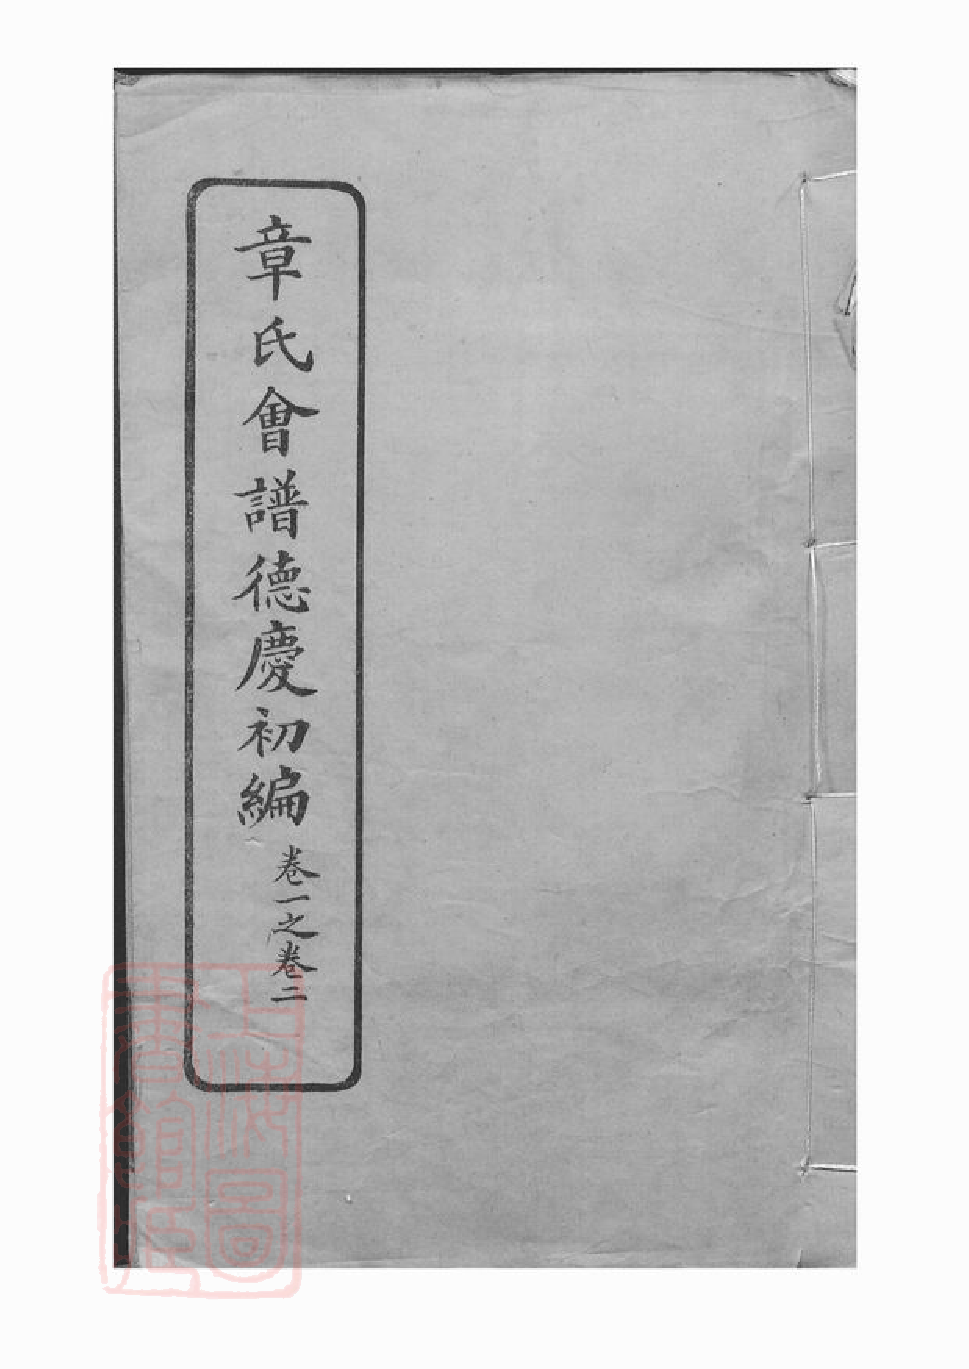 章氏會譜德慶初編
卷一之卷二
上海圖書館藏